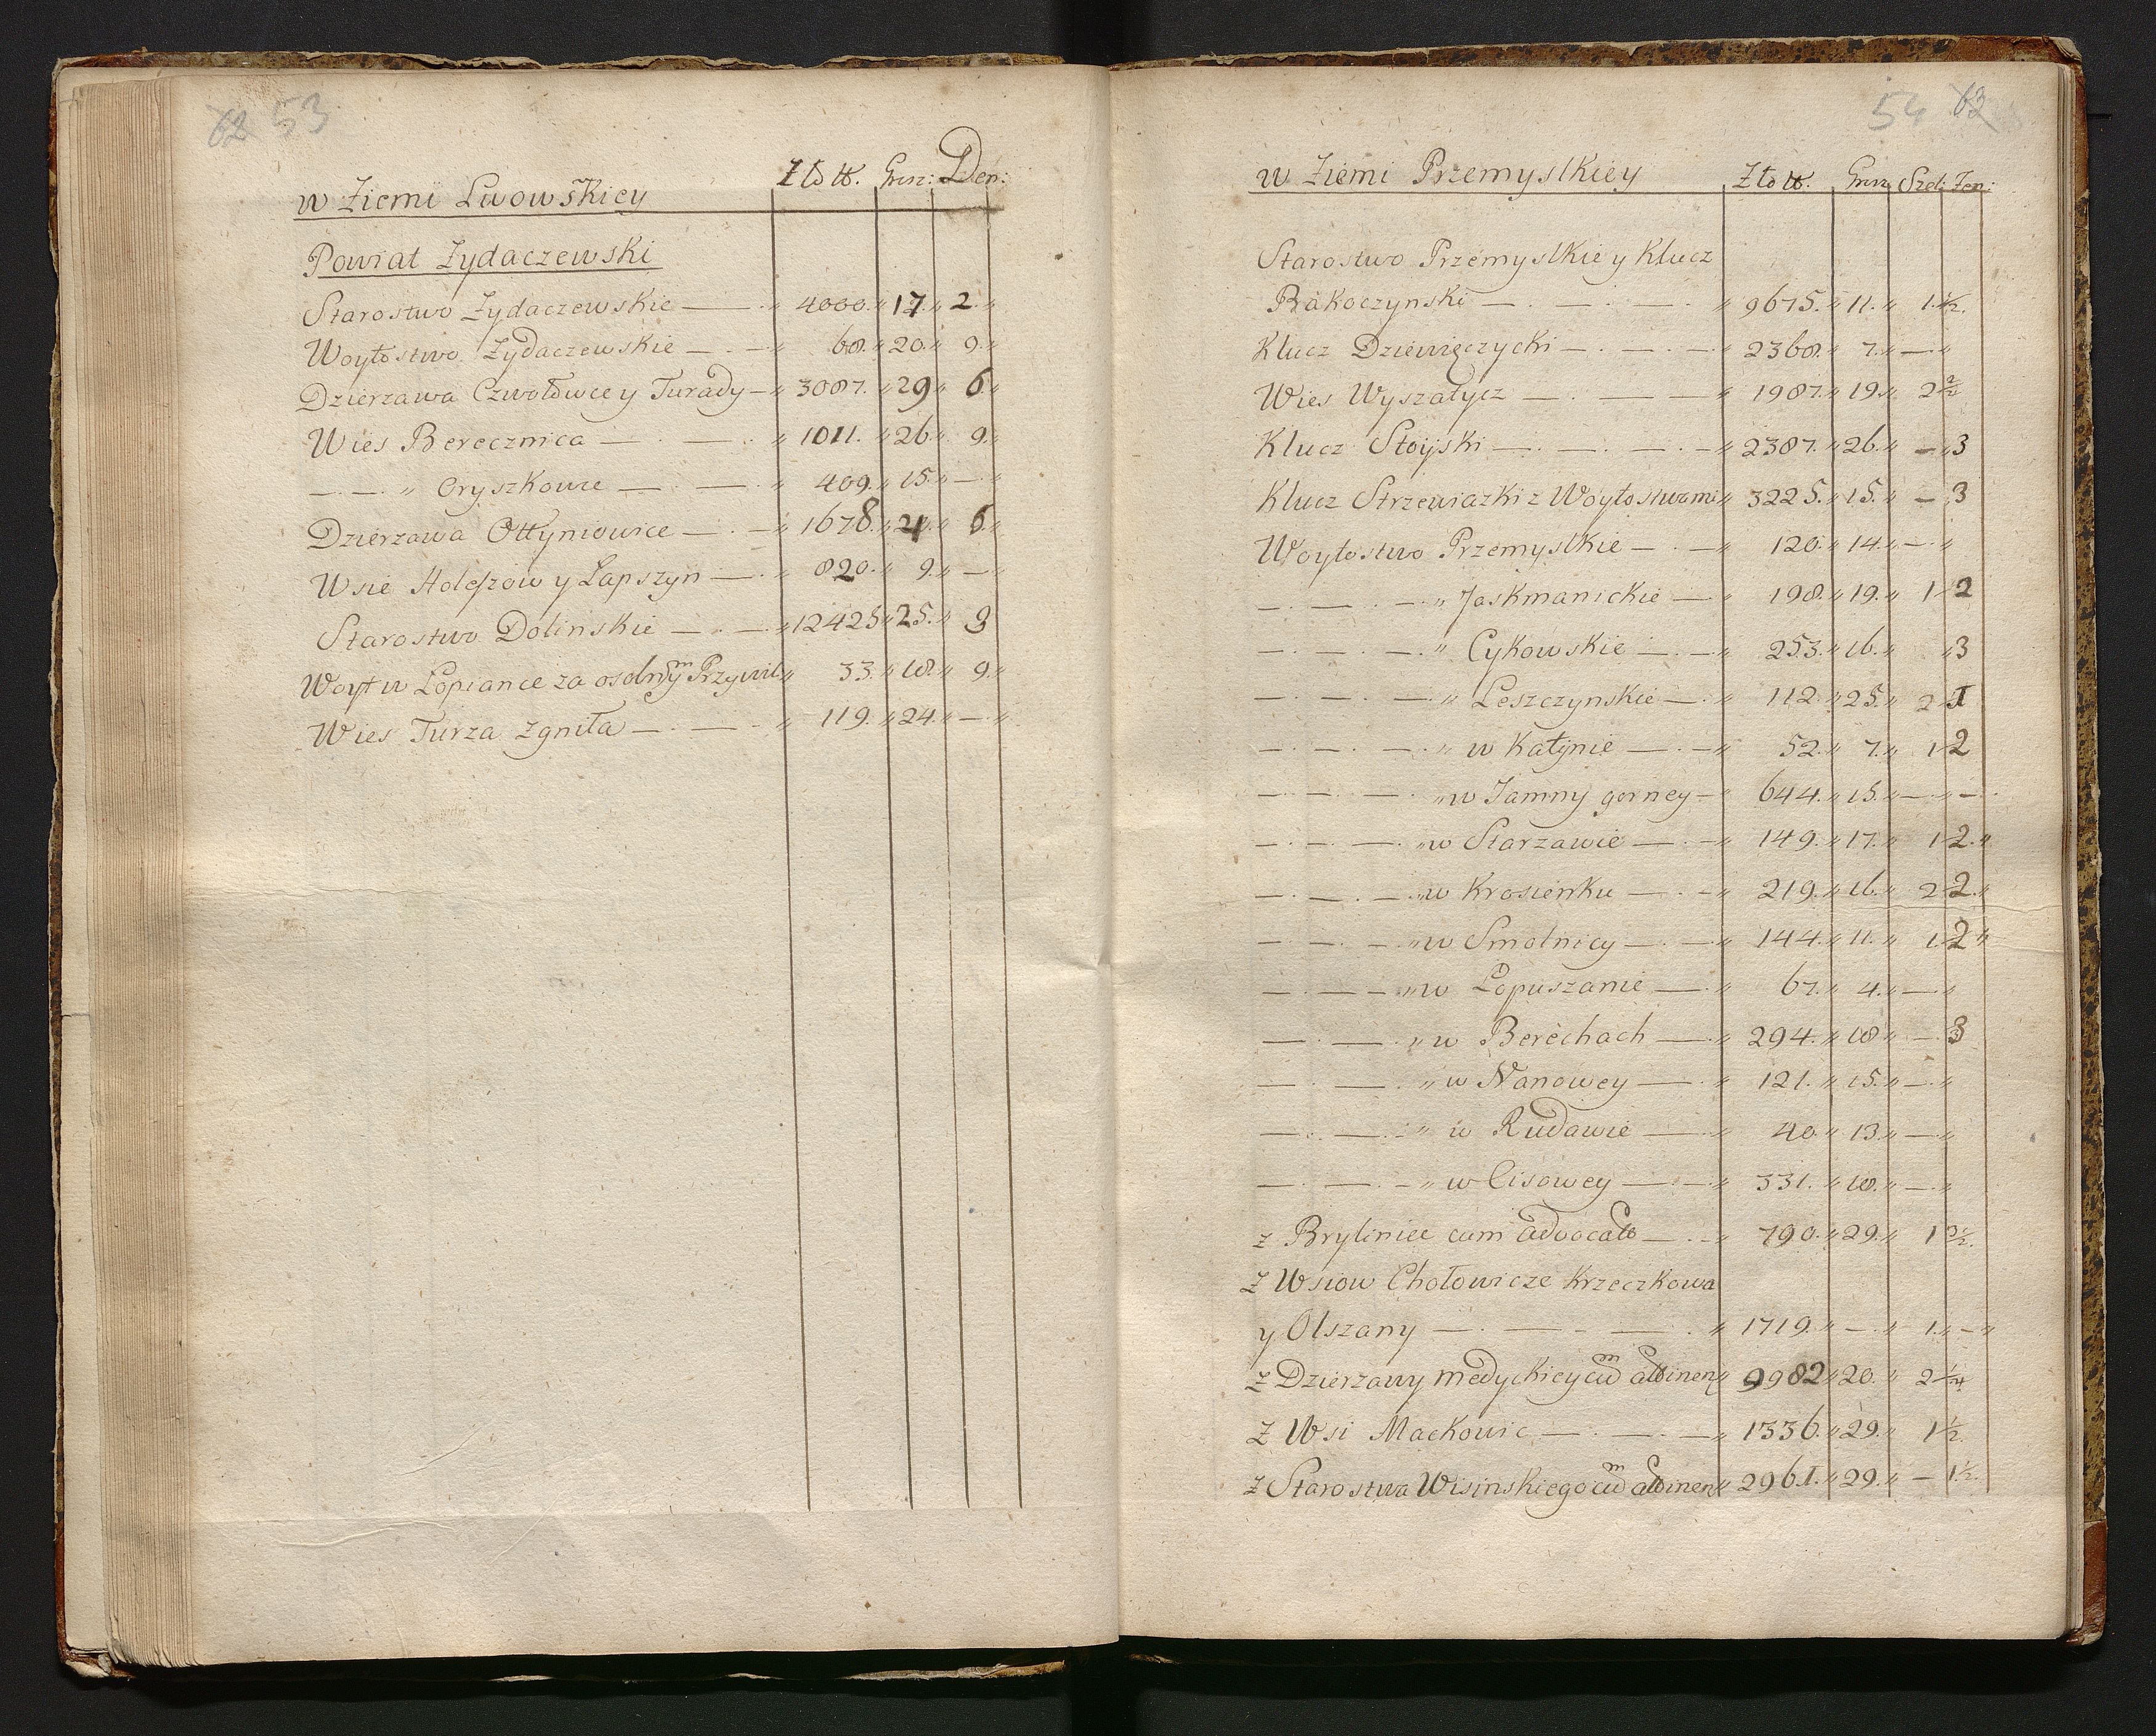 62 53
w Ziemi Lwowskiey Zło tt. Grsz: Den:
Powiat Zydaczewski
Starostwo Zydaczewskie — . „ 4000. „ 17. „ 2. „
Woytostwo Zydaczewskie — . — „ 68. „ 20. „ 9. „
Dzierzawa Czwołowce y Turady — „ 3087. „ 29 „ 6. „
Wies Berecznica — . — . „ 1011. „ 26. „ 9. „
— . — „ Oryszkowce — . — . „ 409. „ 15. „ — „
Dzierzawa Ottyniowice — . — „ 1678. „ 21. „ 6. „
Wsie Holeszow y Lapszyn — . „ 820. „ 9. „ — „
Starostwo Dolinskie — . — . „ 12425 „ 25. „ 3
Woyt w Lopiance za osobnym Przywil. „ 33. „ 18. „ 9. „
Wies Turza zgniła — . — „ 119. „ 24. „ — . „
54 62
w Ziemi Przemyslkiey Zło tt. Grsz Szel: Fen:
Starostwo Przemyslkie y Klucz
Bakoczynski — . — . — . „ 9675. „ 11. „ 1. ½.
Klucz Dziewięczycki — . — . — „ 2368. „ 7. „ — . „
Wies Wyszatycz — . — — „ 1987. „ 19. „ 2 2/2
Klucz Stoyski — . — . — „ 2387. „ 26. „ — „ 3
Klucz Strzewiazki z Woytostwami „ 3225. „ 15. „ — . 3
Woytostwo Przemyslkie — . — „ 120. „ 14. „ — . „
— . — . — . „ Jaskmanickie — „ 198. „ 19. „ 1 . 2
— . — . — . „ Cykowskie — . — „ 253. „ 16. „ „ 3
— . — . — . „ Leszczynskie — . „ 112. „ 25. „ 2 . 1
— . — . — . „ w Katynie — . — „ 52. „ 7. „ 1 . 2
— . — . — . „ w Jamny gorney — „ 644. „ 15. „ — . „ — .
— . — . — . „ w Starzawie — . — „ 149. „ 17. „ 1 . 2. „
— . — . — . „ w Krosienku — . — „ 219. „ 16. „ 2 . 2. „
— . — . — „ w Smolnicy — . — „ 144. „ 11. „ 1. 2 „
— . — . — „ w Lopuszanie — . „ 67. „ 4. „ — . „
— . — . „ w Berechach — . „ 294. „ 18 „ — . 3
— . — . „ w Nanowey — . „ 121. „ 15. „ — . „
— . — . — „ w Rudawie — . „ 40. „ 13. „ — . „
— . — . — „ w Cisowey — . — „ 331. „ 18. „ — . „
z Bryliniec cum advocato — . — „ 790. „ 29. „ 1 ½.
z Wsiow Chołowicze Krzeczkowa
y Olszany — . — . — . „ 1719. „ — . „ 1. „ — „
z Dzierzawy Medyckiey cum attinen „ 9982 „ 20. „ 2 ¼
z Wsi Mackowic — . — . — „ 1336. „ 29. „ 1 ½.
z Starostwa Wisinskiego cum attinen „ 2961. „ 29. „ — 1 ½.